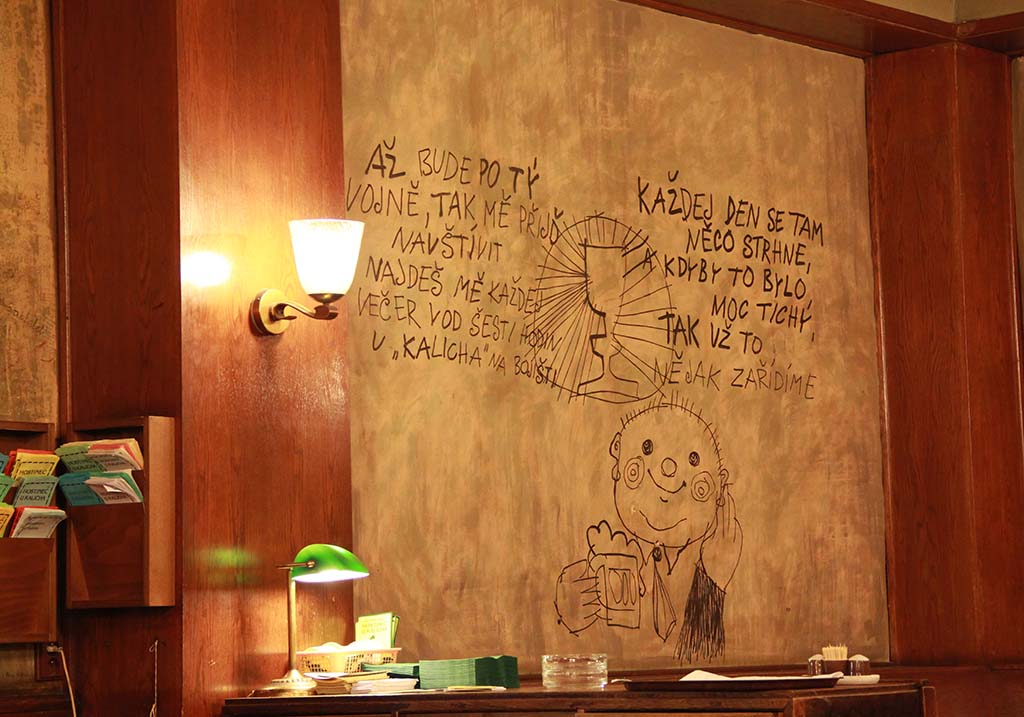 AŽ BUDE PO TÝ
VOJNĚ, TAK MĚ PŘIJĎ
NAVŠTÍVIT
NAJDEŠ MĚ KAŽDEJ
VEČER VOD ŠESTI HODIN
U „KALICHA“ NA BOJIŠTI
KAŽDEJ DEN SE TAM
NĚCO STRHNE,
A KDYBY TO BYLO
MOC TICHÝ,
TAK UŽ TO
NĚJAK ZAŘÍDÍME
HOSTINEC
HOSTINEC
U KALICHA